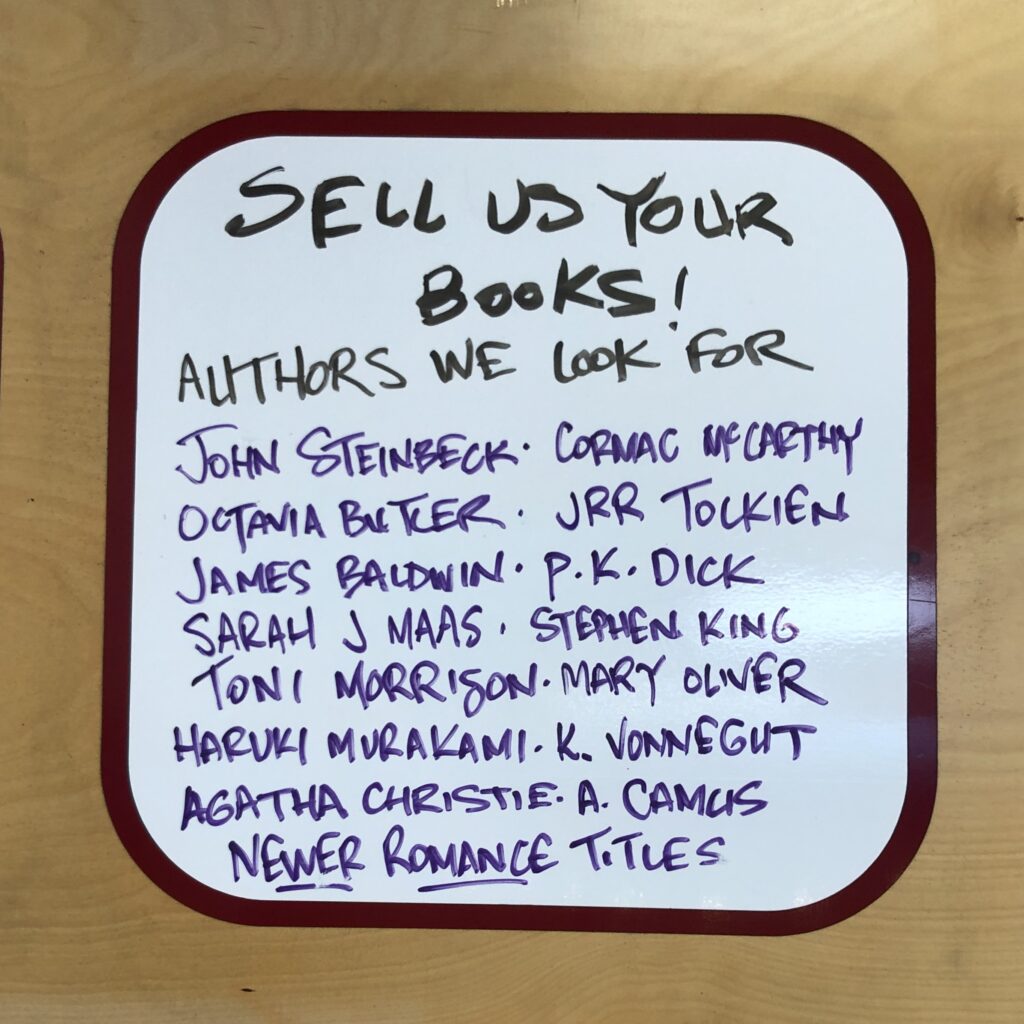 SELL US YOUR
BOOKS!
AUTHORS WE LOOK FOR
JOHN STEINBECK · CORMAC MCCARTHY
OCTAVIA BUTLER · JRR TOLKIEN
JAMES BALDWIN · P.K. DICK
SARAH J MAAS · STEPHEN KING
TONI MORRISON · MARY OLIVER
HARUKI MURAKAMI · K. VONNEGUT
AGATHA CHRISTIE · A. CAMUS
NEWER ROMANCE TITLES